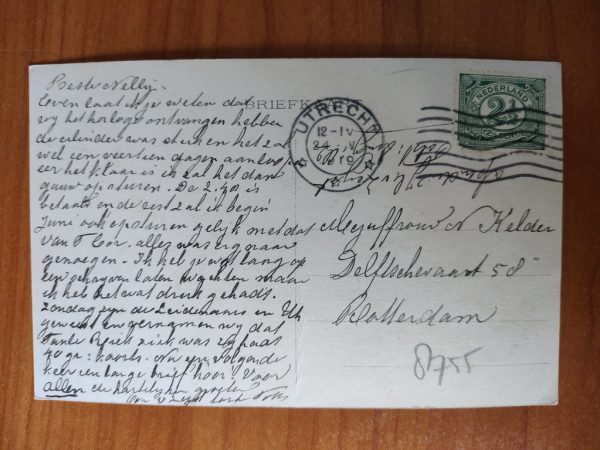 Beste Nelly.
Even laat ik je weten dat
wij het horloge ontvangen hebben
de cilinder was stuk en het zal
wel een veertien dagen aanloopen
eer het klaar is ik zal het dan
gauw opsturen. De 2.40 is
betaald en de rest zal ik begin
Juni ook opsturen gelijk met dat
van T Cor. alles was erg naar
genoegen. Ik heb je wel lang op
laten wachten maar
ik heb het wat druk gehad.
Zondag zijn de in
geweest en vernamen wij dat
Tante ziek was
koorts. Nu een volgende
keer een lange brief hoor. Voor
allen de hartelijke groeten
BRIEFKAART
UTRECHT
12-1V
24
19
NEDERLAND
2½
Mejuffrouw N Kelder
Delftschevaart 58
Rotterdam
8755